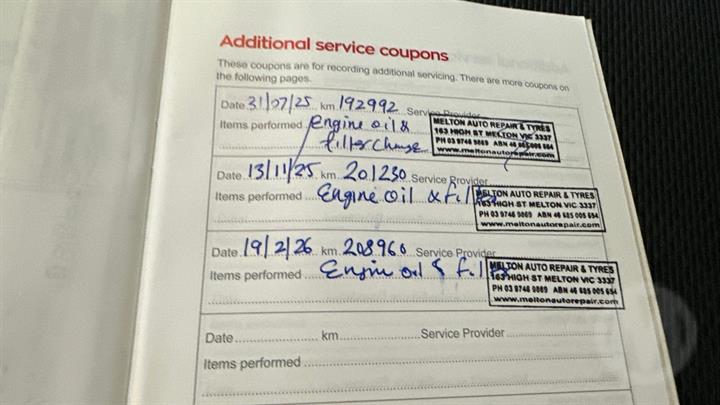 Additional service coupons
These coupons are for recording additional servicing. There are more coupons on
the following pages.
Date 31/07/25 km 192992 Service Provider
Items performed Engine oil &
filter change
MELTON AUTO REPAIR & TYRES
163 HIGH ST MELTON VIC 3337
PH 03 9746 9869 ABN 46 685 005 654
www.meltonautorepair.com
Date 13/11/25 km 201230 Service Provider
Items performed Engine oil & filter
MELTON AUTO REPAIR & TYRES
163 HIGH ST MELTON VIC 3337
PH 03 9746 9869 ABN 46 685 005 654
www.meltonautorepair.com
Date 19/2/26 km 208960 Service Provider
Items performed Engin oil & filter
MELTON AUTO REPAIR & TYRES
163 HIGH ST MELTON VIC 3337
PH 03 9746 9869 ABN 46 685 005 654
www.meltonautorepair.com
Date km Service Provider
Items performed